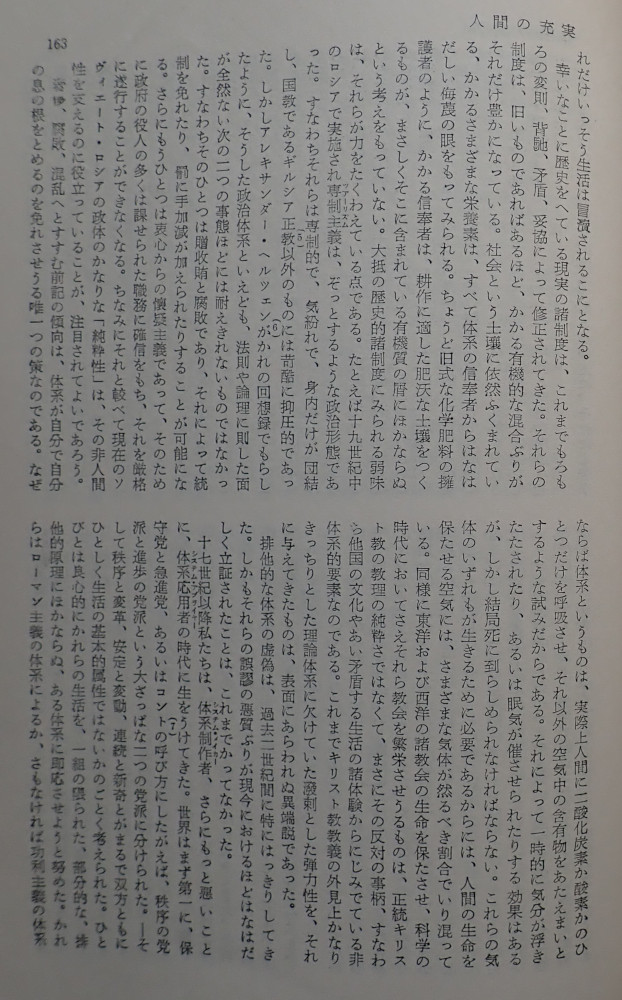 人間の充実
163
れだけいっそう生活は冒瀆されることとなる。
幸いなことに歴史をへている現実の諸制度は、これまでもろもろの
ろの変則、背馳、矛盾、妥協によって修正されてきた。それらの
制度は、旧いものであればあるほど、かかる有機的な混合ぶりが
それだけ豊かになっている。社会という土壌に依然ふくまれてい
る、かかるさまざまな栄養素は、すべて体系の信奉者からはなは
だしい侮蔑の眼をもってみられる。ちょうど旧式な化学肥料の擁
護者のように、かかる信奉者は、耕作に適した肥沃な土壌をつく
るものが、まさしくそこに含まれている有機質の屑にほかならぬ
という考えをもっていない。大抵の歴史的諸制度にみられる弱味
は、それらが力をたくわえている点である。たとえば十九世紀中
のロシアで実施され専制主義は、ぞっとするような政治形態であ
ツアーリズム
った。すなわちそれらは専制的で、気紛れで、身内だけが団結
し、国教であるギルシア正教以外のものには苛酷に抑圧的であっ
(5)
た。しかしアレキサンダー・ヘルツェンがかれの回想録でもらし
(6)
たように、そうした政治体系といえども、法則や論理に則した面
が全然ない次の二つの事態ほどには耐えきれないものではなかっ
た。すなわちそのひとつは贈収賄と腐敗であり、それによって統
制を免れたり、罰に手加減が加えられたりすることが可能にな
る。さらにもうひとつは衷心からの懐疑主義であって、そのため
に政府の役人の多くは課せられた職務に確信をもち、それを厳格
に遂行することができなくなる。ちなみにそれと較べて現在のソ
ヴィエート・ロシアの政体のかなりな「純粋性」は、その非人間
性を支えるのに役立っていることが、注目されてよいであろう。
腐敗、混乱へとすすむ前記の傾向は、体系が自分で自分
の息の根をとめるのを免れさせうる唯一つの策なのである。なぜ
ならば体系というものは、実際上人間に二酸化炭素か酸素かのひ
とつだけを呼吸させ、それ以外の空気中の含有物をあたえまいと
するような試みだからである。それによって一時的に気分が浮き
たたされたり、あるいは眠気が催させられたりする効果はある
が、しかし結局死に到らしめられなければならない。これらの気
体のいずれもが生きるために必要であるからには、人間の生命を
保たせる空気には、さまざまな気体が然るべき割合でいり混って
いる。同様に東洋および西洋の諸教会の生命を保たせ、科学の
時代においてさえそれら教会を繁栄させうるものは、正統キリス
ト教の教理の純粋さではなくて、まさにその反対の事柄、すなわ
ち他国の文化やあい矛盾する生活の諸体験からにじみでている非
体系的要素なのである。これまでキリスト教教義の外見上かなり
きっちりとした理論体系に欠けていた潑剌とした弾力性を、それ
に与えてきたものは、表面にあらわれぬ異端説であった。
排他的な体系の虚偽は、過去二世紀間に特にはっきりしてき
た。しかもそれらの誤謬の悪質ぶりが現今におけるほどはなはだ
しく立証されたことは、これまでかってなかった。
十七世紀以降私たちは、体系制作者、さらにもっと悪いこと
システム・メイカー
に、体系応用者の時代に生をうけてきた。世界はまず第一に、保
守党と急進党、あるいはコントの呼び方にしたがえば、秩序の党
(7)
派と進歩の党派という大ざっぱな二つの党派に分けられた。―そ
して秩序と変革、安定と変動、連続と新奇とがまるで双方ともに
ひとしく生活の基本的属性ではないかのごとく考えられた。ひと
びとは良心的にかれらの生活を、一組の限られた、部分的な、排
他的原理にほかならぬ、ある体系に即応させようと努めた。かれ
らはローマン主義の体系によるか、さもなければ功利主義の体系